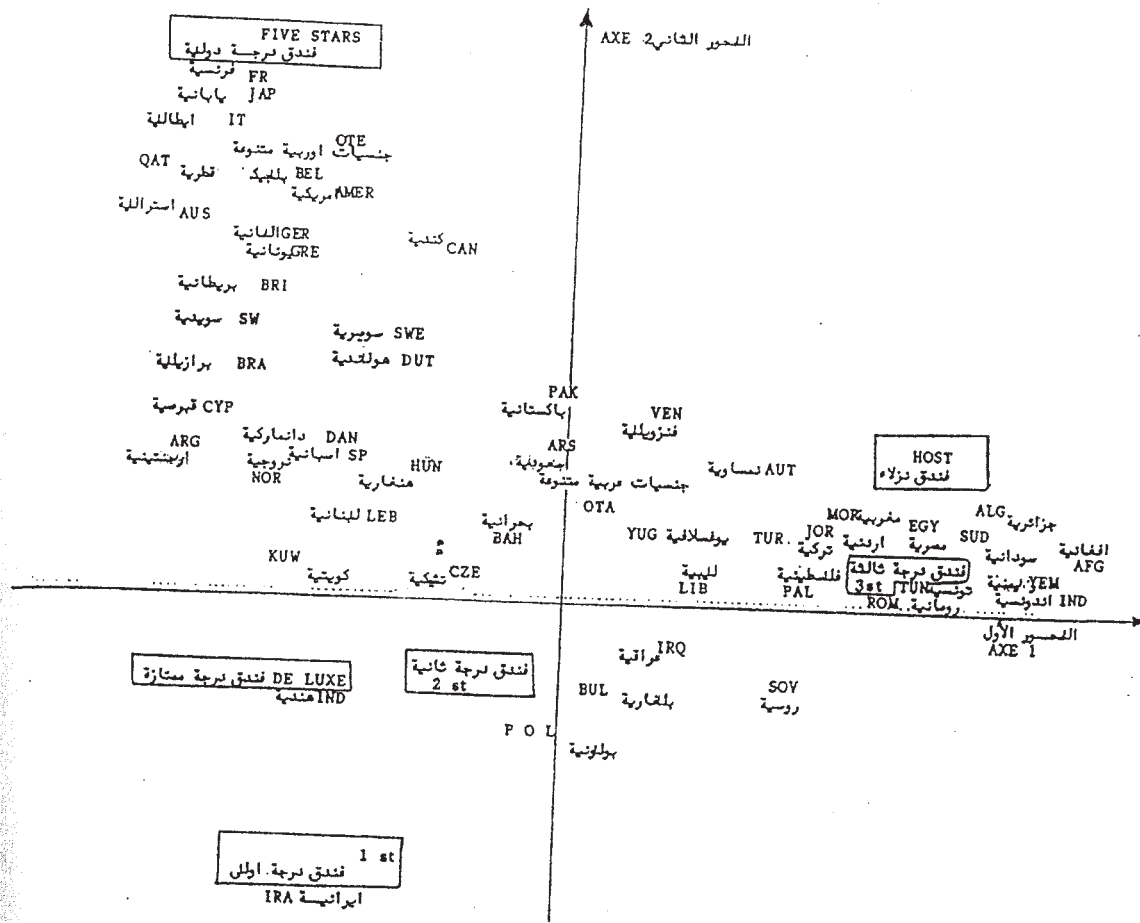 FIVE STARS
فندق درجة دولية
AXE 2 المحور الثاني
فرنسية FR
يابانية JAP
ايطالية IT
OTE
جنسيات اوربية متنوعة
QAT قطرية
بلجيك BEL
امريكية AMER
استرالية AUS
المانية GER
يونانية GRE
كندية CAN
بريطانية BRI
سويدية SW
سويسرية SWE
برازيلية BRA
هولندية DUT
قبرصية CYP
PAK
باكستانية
VEN
فنزويلية
ARG
ارجنتينية
دانماركية DAN
اسبانية SP
نروجية
NOR
HÜN
هنغارية
ARS
جنسيات عربية متنوعة
OTA
نمساوية AUT
HOST
فندق نزلاء
للبنانية LEB
بحرانية
BAH
YUG يوغسلافية
TUR.
تركية
JOR
اردنية
MOR مغربية
EGY
مصرية
SUD
سودانية
ALG
جزائرية
افغانية
AFG
KUW
كويتية
تشيكية CZE
لليبية
LIB
فلسطينية
PAL
فندق درجة ثالثة
3st
TUN تونسية
ROM رومانية
يمنية YEM
اندونسية IND
المحور الأول
AXE 1
فندق درجة ممتازة DE LUXE
هندية IND
فندق درجة ثانية
2 st
عراقية IRQ
BUL
بلغارية
SOV
روسية
P O L
بولونية
1 st
فندق درجة. اولى
ايرانية IRA